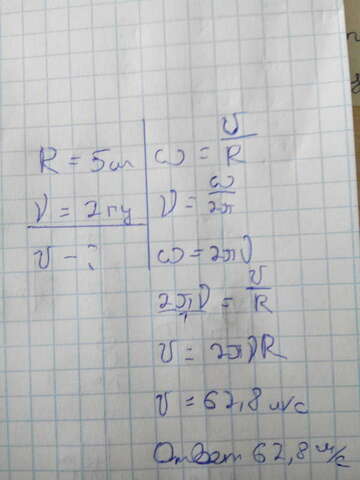 R = 5см
ν = 2 гц
v - ?
ω = v/R
ν = ω/2π
ω = 2πν
2πν = v/R
v = 2πνR
v = 62,8 м/с
Ответ 62,8 м/с